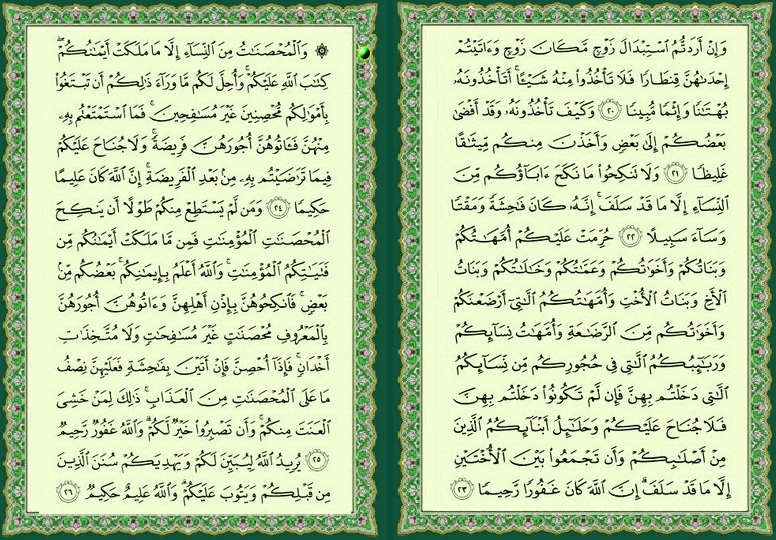 وَإِنْ أَرَدتُّمُ ٱسْتِبْدَالَ زَوْجٍ مَّكَانَ زَوْجٍ وَءَاتَيْتُمْ
إِحْدَىٰهُنَّ قِنطَارًا فَلَا تَأْخُذُوا۟ مِنْهُ شَيْـًٔا ۚ أَتَأْخُذُونَهُۥ
بُهْتَٰنًا وَإِثْمًا مُّبِينًا ٢٠ وَكَيْفَ تَأْخُذُونَهُۥ وَقَدْ أَفْضَىٰ
بَعْضُكُمْ إِلَىٰ بَعْضٍ وَأَخَذْنَ مِنكُم مِّيثَٰقًا
غَلِيظًا ٢١ وَلَا تَنكِحُوا۟ مَا نَكَحَ ءَابَآؤُكُم مِّنَ
ٱلنِّسَآءِ إِلَّا مَا قَدْ سَلَفَ ۚ إِنَّهُۥ كَانَ فَٰحِشَةً وَمَقْتًا
وَسَآءَ سَبِيلًا ٢٢ حُرِّمَتْ عَلَيْكُمْ أُمَّهَٰتُكُمْ
وَبَنَاتُكُمْ وَأَخَوَٰتُكُمْ وَعَمَّٰتُكُمْ وَخَٰلَٰتُكُمْ وَبَنَاتُ
ٱلْأَخِ وَبَنَاتُ ٱلْأُخْتِ وَأُمَّهَٰتُكُمُ ٱلَّٰتِىٓ أَرْضَعْنَكُمْ
وَأَخَوَٰتُكُم مِّنَ ٱلرَّضَٰعَةِ وَأُمَّهَٰتُ نِسَآئِكُمْ
وَرَبَٰٓئِبُكُمُ ٱلَّٰتِى فِى حُجُورِكُم مِّن نِّسَآئِكُمُ
ٱلَّٰتِى دَخَلْتُم بِهِنَّ فَإِن لَّمْ تَكُونُوا۟ دَخَلْتُم بِهِنَّ
فَلَا جُنَاحَ عَلَيْكُمْ وَحَلَٰٓئِلُ أَبْنَآئِكُمُ ٱلَّذِينَ
مِنْ أَصْلَٰبِكُمْ وَأَن تَجْمَعُوا۟ بَيْنَ ٱلْأُخْتَيْنِ
إِلَّا مَا قَدْ سَلَفَ ۗ إِنَّ ٱللَّهَ كَانَ غَفُورًا رَّحِيمًا ٢٣
۞ وَٱلْمُحْصَنَٰتُ مِنَ ٱلنِّسَآءِ إِلَّا مَا مَلَكَتْ أَيْمَٰنُكُمْ ۖ
كِتَٰبَ ٱللَّهِ عَلَيْكُمْ ۚ وَأُحِلَّ لَكُم مَّا وَرَآءَ ذَٰلِكُمْ أَن تَبْتَغُوا۟
بِأَمْوَٰلِكُم مُّحْصِنِينَ غَيْرَ مُسَٰفِحِينَ ۚ فَمَا ٱسْتَمْتَعْتُم بِهِۦ
مِنْهُنَّ فَـَٔاتُوهُنَّ أُجُورَهُنَّ فَرِيضَةً ۚ وَلَا جُنَاحَ عَلَيْكُمْ
فِيمَا تَرَٰضَيْتُم بِهِۦ مِنۢ بَعْدِ ٱلْفَرِيضَةِ ۚ إِنَّ ٱللَّهَ كَانَ عَلِيمًا
حَكِيمًا ٢٤ وَمَن لَّمْ يَسْتَطِعْ مِنكُمْ طَوْلًا أَن يَنكِحَ
ٱلْمُحْصَنَٰتِ ٱلْمُؤْمِنَٰتِ فَمِن مَّا مَلَكَتْ أَيْمَٰنُكُم مِّن
فَتَيَٰتِكُمُ ٱلْمُؤْمِنَٰتِ ۚ وَٱللَّهُ أَعْلَمُ بِإِيمَٰنِكُم ۚ بَعْضُكُم مِّنۢ
بَعْضٍ ۚ فَٱنكِحُوهُنَّ بِإِذْنِ أَهْلِهِنَّ وَءَاتُوهُنَّ أُجُورَهُنَّ
بِٱلْمَعْرُوفِ مُحْصَنَٰتٍ غَيْرَ مُسَٰفِحَٰتٍ وَلَا مُتَّخِذَٰتِ
أَخْدَانٍ ۚ فَإِذَآ أُحْصِنَّ فَإِنْ أَتَيْنَ بِفَٰحِشَةٍ فَعَلَيْهِنَّ نِصْفُ
مَا عَلَى ٱلْمُحْصَنَٰتِ مِنَ ٱلْعَذَابِ ۚ ذَٰلِكَ لِمَنْ خَشِىَ
ٱلْعَنَتَ مِنكُمْ ۚ وَأَن تَصْبِرُوا۟ خَيْرٌ لَّكُمْ ۗ وَٱللَّهُ غَفُورٌ رَّحِيمٌ
٢٥ يُرِيدُ ٱللَّهُ لِيُبَيِّنَ لَكُمْ وَيَهْدِيَكُمْ سُنَنَ ٱلَّذِينَ
مِن قَبْلِكُمْ وَيَتُوبَ عَلَيْكُمْ ۗ وَٱللَّهُ عَلِيمٌ حَكِيمٌ ٢٦